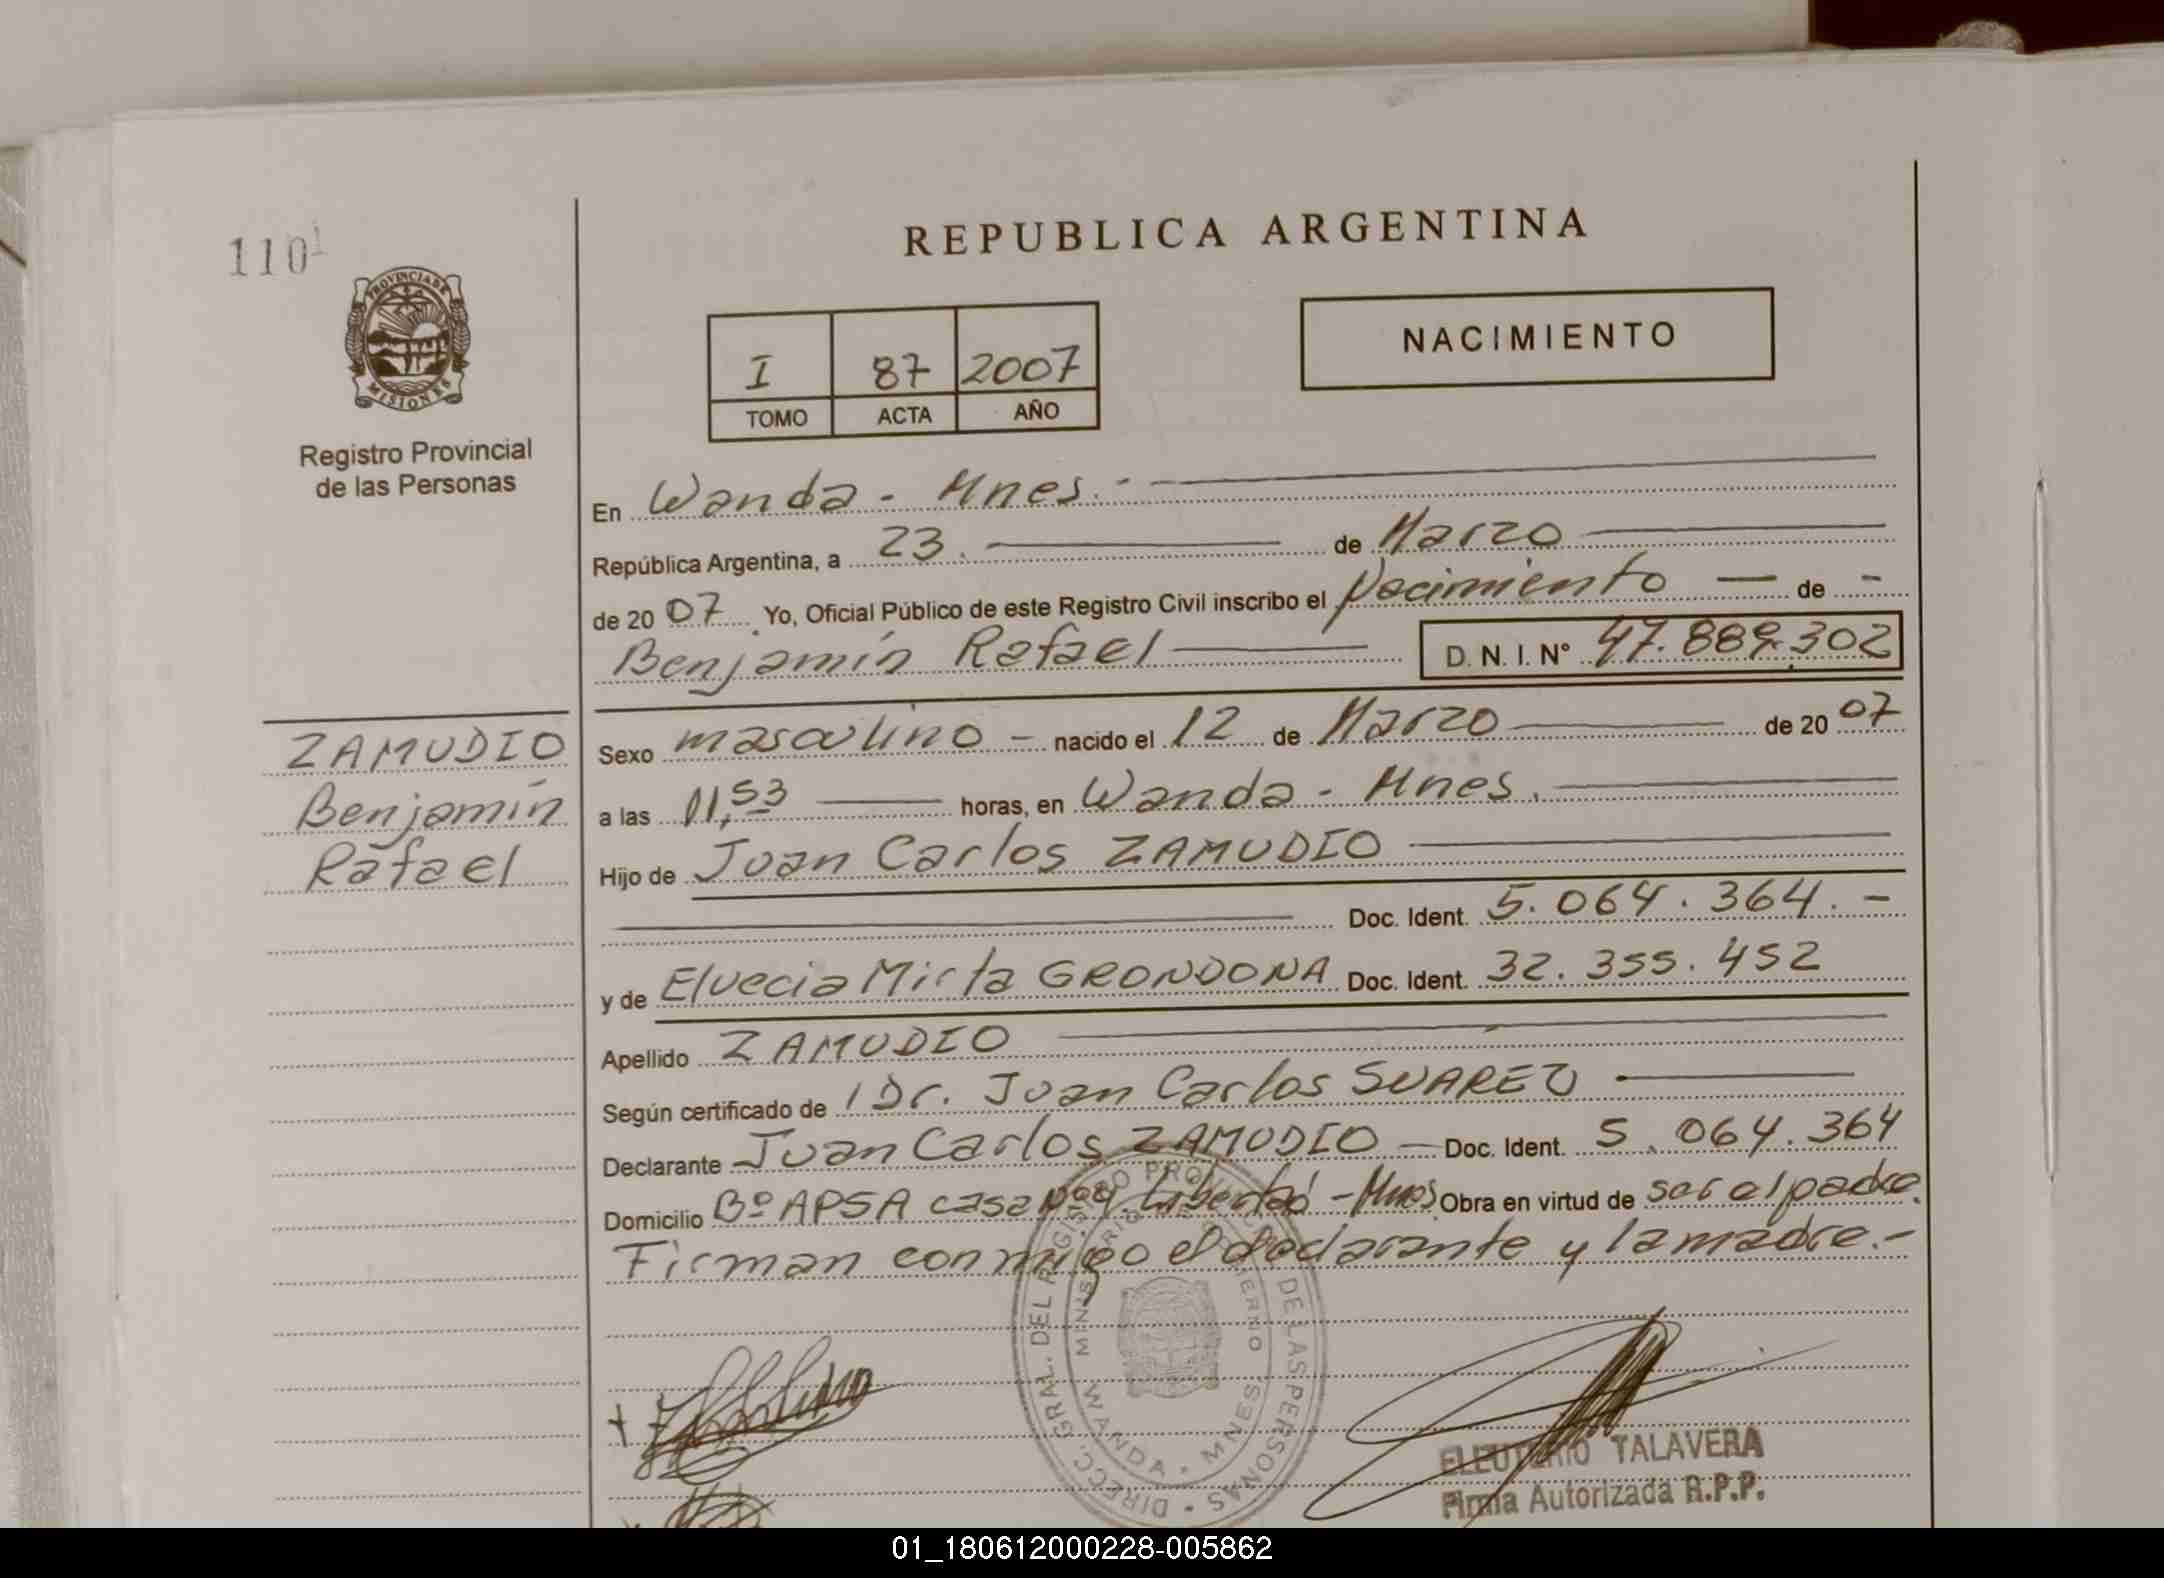 110
PROVINCIA DE
MISIONES
Registro Provincial
de las Personas
REPUBLICA ARGENTINA
I 87 2007
TOMO ACTA AÑO
NACIMIENTO
En Wanda - Mnes. -
República Argentina, a 23. de Marzo
de 20 07 Yo, Oficial Público de este Registro Civil inscribo el Nacimiento — de -
Benjamín Rafael D. N. I. Nº 47.889.302
ZAMUDIO
Benjamín
Rafael
Sexo masculino - nacido el 12 de Marzo de 20 07
a las 11,53 horas, en Wanda - Mnes.
Hijo de Juan Carlos ZAMUDIO
Doc. Ident. 5.064.364. -
y de Elvecia Mirta GRONDONA Doc. Ident. 32.355.452
Apellido ZAMUDIO
Según certificado de Dr. Juan Carlos SUAREZ
Declarante Juan Carlos ZAMUDIO — Doc. Ident. 5.064.364
Domicilio Bº APSA casa Libertad - Mnes. Obra en virtud de ser el padre.
Firman conmigo el declarante y la madre.-
DIRECC. GRAL. DEL REGISTRO PROVINCIAL DE LAS PERSONAS
MINISTERIO GOBIERNO
WANDA - MNES.
ELEUTERIO TALAVERA
Firma Autorizada R.P.P.
01_180612000228-005862